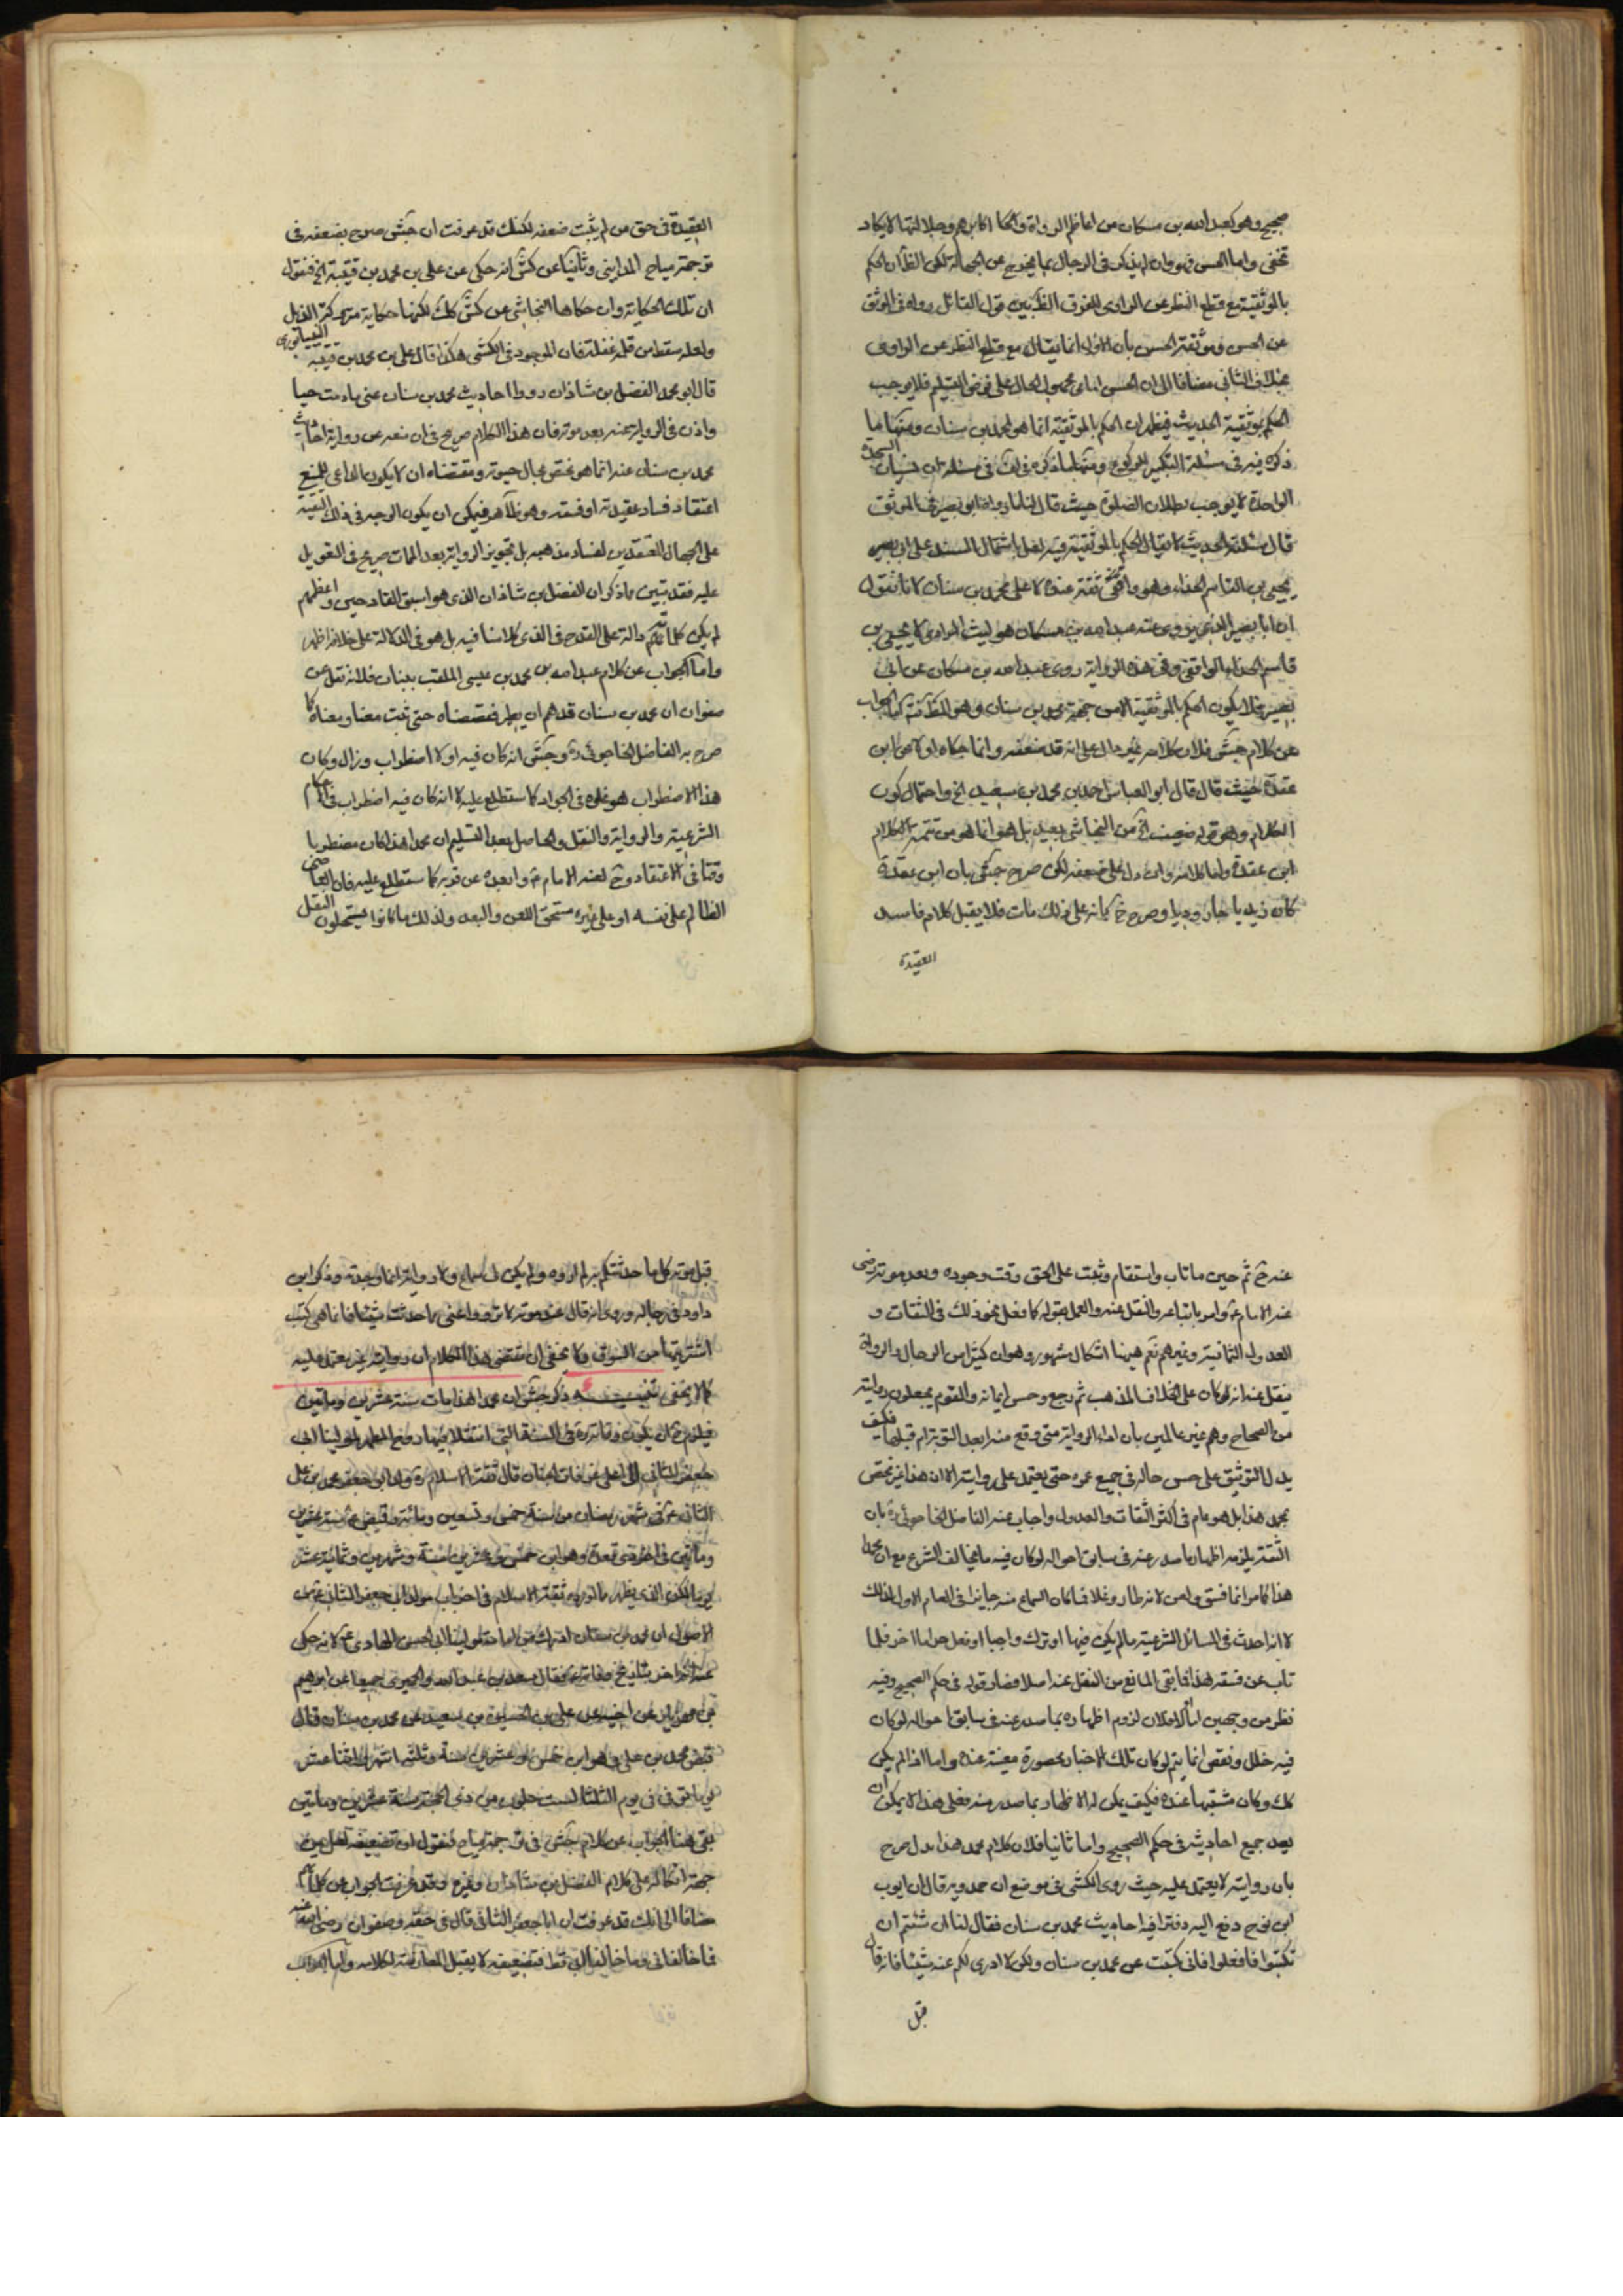 صحيح وهو كعبد الله بن مسكان من اعاظم الرواة واكابرهم وجلالتها لا يكاد
تخفى واما الحسن فهو وان لم يذكر في الرجال بما يخرج عن الجهالة لكن الظ ان الحكم
بالموثقية مع قطع النظر عن الراوى للفرق الظ بين قول القائل رواه في الموثق
عن الحسن وموثقة الحسن بان الاول انما يقال مع قطع النظر عن الراوى
بخلاف الثانى مضافا الى ان الحسن امامى مجهول الحال على فرض التسليم فلا يوجب
الحكم بموثقية الحديث فيظهر ان الحكم بالموثقية انما هو لمحمد بن سنان ومنها ما
ذكره فيه في مسئلة التكبير للركوع ومنها ما ذكره في مسئلة ان نسيان السجدة
الواحدة لا يوجب بطلان الصلوة حيث قال لنا ما رواه ابو بصير في الموثق
قال سئلته الحديث لا يقال الحكم بالموثقية فيه لعل باشتمال السند على ابى بصير
يحيى بن القاسم الحذاء وهو واقفى ثقة عنده لا على محمد بن سنان لانا نقول
ان ابا بصير الذى يروى عنه عبد الله بن مسكان هو ليث المرادى لا يحيى بن
قاسم الحذاء الواقفى وفى هذه الرواية روى عبد الله بن مسكان عن ابى
بصير فلا يكون الحكم بالموثقية الا من جهة محمد بن سنان وهو الثقة واما الجواب
عن كلام جش فلان كلامه غير دال على انه قد ضعفه وانما حكاه اولا عن ابن
عقدة حيث قال قال ابو العباس احمد بن محمد بن سعيد الخ واحتمال كون
الكلام وهو قوله ضعيف الخ من النجاشى بعيد بل هو انما هو من تتمة كلام
ابن عقدة واما كلامه وان دل على ضعفه لكن صرح جش بان ابن عقدة
كان زيديا جاروديا وصرح خ بانه على ذلك مات فلا يقبل كلام فاسد
العقيدة
العقيدة في حق من لم يثبت ضعفه لكنك قد عرفت ان جش صرح بضعفه في
ترجمة مياح المداينى وثانيا عن كش انه حكى عن على بن محمد بن قتيبة الخ فنقول
ان تلك الحكاية وان حكاها النجاشى عن كش كك لكنها حكاية متروكة الذيل
ولعله سقط من قلمه غفلة فان الموجود في الكشى هكذا قال على بن محمد بن قتيبة النيسابورى
قال ابو محمد الفضل بن شاذان ردوا احاديث محمد بن سنان عنى ما دمت حيا
واذن في الرواية عنه بعد موته فان هذا الكلام صريح في ان منعه عن رواية احاديث
محمد بن سنان عنه انما هو مختص بحال حيوته ومقتضاه ان لا يكون الداعى للمنع
اعتقاد فساد عقيدته او فسقه وهو ظاهر فيمكن ان يكون الوجه في ذلك التقية
على الجهال المعتقدين لفساد مذهبه بل تجويز الرواية بعد الممات صريح في التعويل
عليه فقد تبين ما ذكر ان الفضل بن شاذان الذى هو اسبق القادحين واعظمهم
لم يكن كلماتهم دالة على القدح في الذى كلامنا فيه بل هو في الدلالة على خلافه اظهر
واما الجواب عن كلام عبد الله بن محمد بن عيسى الملقب ببنان فلانه نقل عن
صفوان ان محمد بن سنان قد هم ان يطير فقصصناه حتى ثبت معنا ومعناه كما
صرح به الفاضل الخاجوئى ره وجش انه كان فيه اولا اضطراب وزال وكان
هذا الاضطراب هو غلوه في الجواد كما ستطلع عليه لا انه كان فيه اضطراب في الاحكام
الشرعية والرواية والنقل والحاصل بعد التسليم ان محمدا هذا كان مضطربا
وقتا في الاعتقاد وح لعنه الامام ع وابعده عن قربه كما ستطلع عليه فان العاصى
الظالم على نفسه او على غيره مستحق اللعن والبعد ولذلك ما كانوا يستحلون النقل
عنه ح ثم حين ما تاب واستقام وثبت على الحق وقت وجوده وبعد موته رضى
عنه الامام ع وامر باتباعه والنقل عنه والعمل بقوله كما فعل نحو ذلك في الثقات و
العدول الثمانية وغيرهم نعم هيهنا اشكال مشهور وهو ان كثيرا من الرجال والرواة
ينقل عنه انه لو كان على خلاف المذهب ثم رجع وحسن ايمانه والقوم يجعلون روايته
من الصحاح وهم غير عالمين بان اداء الرواية متى وقع منه ابعد التوبة ام قبلها فكيف
يدل التوثيق على حسن حاله في جميع عمره حتى يعتمد على روايته الا ان هذا غير مختص
بمحمد هذا بل هو عام في اكثر الثقات والعدول واجاب عنه الفاضل الخاجوئى ره بان
الثقة يلزمه اظهار ما صدر عنه في سابق احواله لو كان فيه ما يخالف الشرع مع ان محمدا
هذا كما مر انما فسق ولعن لانه طار وغلا فكان السماع منه جايزا في العام الاول لذلك
لا انه احدث في المسائل الشرعية ما لم يكن فيها او ترك واجبا او فعل حراما اخر فلما
تاب عن فسقه هذا فما بقى المانع من النقل عنه اصلا فصار قوله في حكم الصحيح وفيه
نظر من وجهين اما اولا فلان لزوم اظهاره بما صدر عنه في سابق احواله لو كان
فيه خلل ونقص انما يتم لو كان تلك الاخبار محصورة معينة عنده واما اذا لم يكن
كك وكان مشتبها عنده فكيف يمكن له الاظهار بما صدر منه فعلى هذا لا يمكن ان
يعد جميع احاديثه في حكم الصحيح واما ثانيا فلان كلام محمد هذا يدل صرح
بان روايته لا يعتمد عليه حيث روى الكشى في موضع ان حمدويه قال ان ايوب
ابن نوح دفع اليه دفترا فيه احاديث محمد بن سنان فقال لنا ان شئتم ان
تكتبوا فافعلوا فانى كتبت عن محمد بن سنان ولكن لا اروى لكم عنه شيئا فانه قال
قبل
قبل موته كل ما حدثتكم به لم اروه ولم يكن لى سماع ولا رواية انما وجدته وذكر ابن
داود في رجاله وروى انه قال عند موته لا ترووا عنى مما حدثت شيئا فانما هى كتب
اشتريتها من السوق ولا يخفى ان مقتضى هذا الكلام ان روايته غير معتمد عليه
كما لا يخفى تنبيه ذكر جش ان محمدا هذا مات سنة عشرين وماتين
فيلزم ان يكون وفاته ره في السنة التى انتقل فيها روح المطهر لمولينا ابى
جعفر الثانى الى اعلى غرفات الجنان قال ثقة الاسلام ره ولد ابو جعفر محمد بن على
الثانى ع في شهر رمضان من سنة خمس وتسعين ومائة وقبض ع سنة عشرين
وماتين في اخر ذى قعدة وهو ابن خمس وعشرين سنة وشهرين وثمانية عشر
يوما لكن الذى يظهر مما اورده ثقة الاسلام في اخر باب مولد ابى جعفر الثانى ع من
الاصول ان محمد بن سنان ادرك من امامة مولينا ابى الحسن الهادى ع لانه حكى
عنه تاريخ وفاته ع فقال سعد بن عبد الله والحميرى جميعا عن ابرهيم
بن مهزيار عن اخيه على عن الحسين بن سعيد عن محمد بن سنان قال
قبض محمد بن على وهو ابن خمس وعشرين سنة وثلثة اشهر واثنا عشر
يوما توفى في يوم الثلثا لست خلون من ذى الحجة سنة عشرين وماتين
بقى هنا الجواب عن كلام جش في ترجمة مياح فنقول ان تضعيفه لعل من
جهة اتكاله على كلام الفضل بن شاذان وغيره وقد عرفت الجواب عن كلماتهم
مضافا الى انك قد عرفت ان ابا جعفر الثانى قال في حقه وصفوان رضى الله عنهما
فما خالفانى وما خالفا ابى قط فتضعيفه لا يقبل المعارضة لكلامه واما الجواب